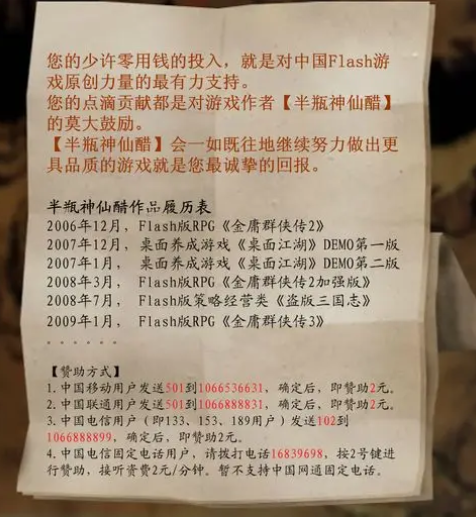 您的少许零用钱的投入，就是对中国Flash游
戏原创力量的最有力支持。
您的点滴贡献都是对游戏作者【半瓶神仙醋】
的莫大鼓励。
【半瓶神仙醋】会一如既往地继续努力做出更
具品质的游戏就是您最诚挚的回报。
半瓶神仙醋作品履历表
2006年12月，Flash版RPG《金庸群侠传2》
2007年12月，桌面养成游戏《桌面江湖》DEMO第一版
2007年1月， 桌面养成游戏《桌面江湖》DEMO第二版
2008年3月， Flash版RPG《金庸群侠传2加强版》
2008年7月， Flash版策略经营类《盗版三国志》
2009年1月， Flash版RPG《金庸群侠传3》
......
【赞助方式】
1.中国移动用户发送501到1066536631，确定后，即赞助2元。
2.中国联通用户发送501到1066888831，确定后，即赞助2元。
3.中国电信用户（即133、153、189用户）发送102到
1066888899，确定后，即赞助2元。
4.中国电信固定电话用户，请拨打电话16839698，按2号键进
行赞助，接听资费2元/分钟。暂不支持中国网通固定电话。